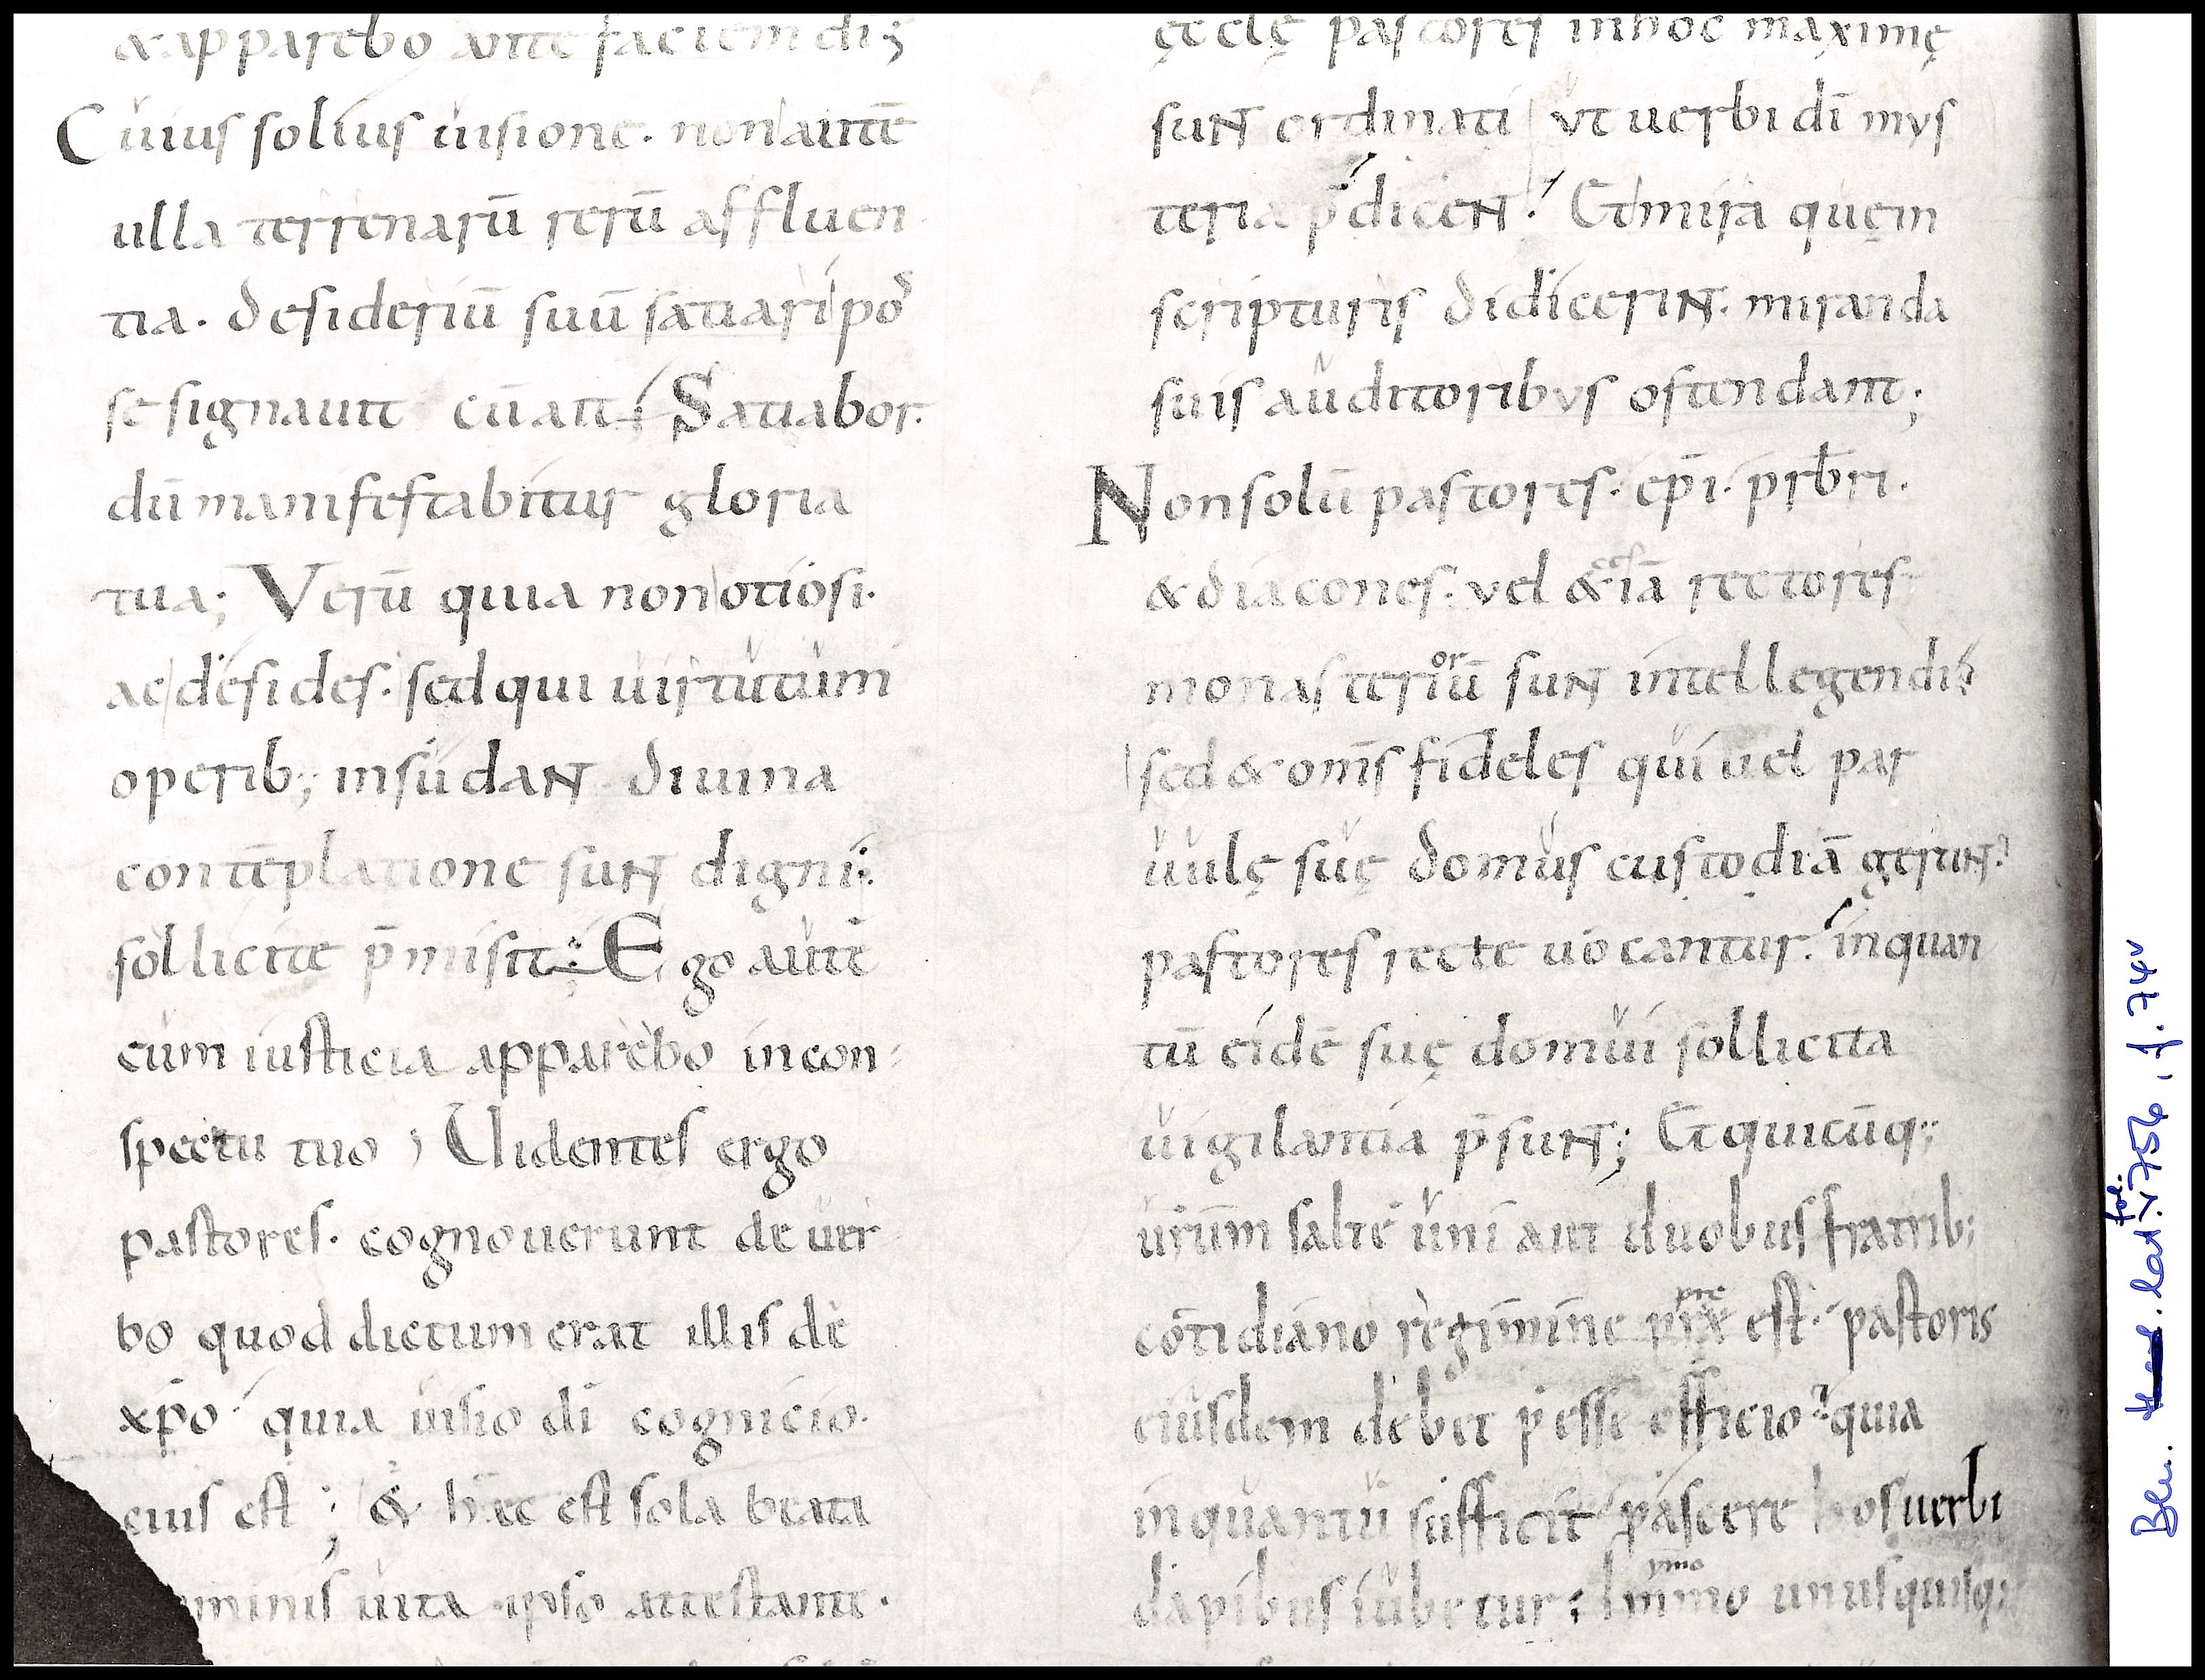 & apparebo ante faciem di;
Cuius solius uisione. non autē
ulla terrenarū rerū affluen
tia. desideriū suū satiari pos
se signauit cū ait; Satiabor.
dū manifestabitur gloria
tua; Verū quia non otiosi.
ac desides. sed qui uirtutum
operib; insudant diuina
contēplatione sunt digni;
sollicite p̄misit; Ego autē
cum iusticia apparebo in con
spectu tuo; Uidentes ergo
pastores. cognouerunt de uer
bo quod dictum erat illis de
xp̄o. quia uisio dī cognicio.
eius est; & hęc est sola beata
minis uita ipso attestante.
ęcclę pastores in hoc maximę
sunt ordinati ut uerbi dī mys
teria p̄dicent. Et mira quę in
scripturis didicerint. miranda
suis auditoribus ostendant;
Non solū pastores. ep̄i. prb̄ri.
& diacones. uel &iā rectores
monasteriorū sunt intellegendi;
sed & om̄s fideles qui uel par
uulę suę domus custodiā gerunt.
pastores recte uocantur. in quan
tū eidē suę domui sollicita
uigilantia p̄sunt; Et quicūq;
urūm saltē uni aut duobus fratrib;
cotidiano regimine pre est. pastoris
eiusdem debet p esse officio? quia
in quantū sufficit pascere hos uerbi
dapibus iubetur; ymo Immo unusquisq;
Bln. lat. fol. 756, f. 74v